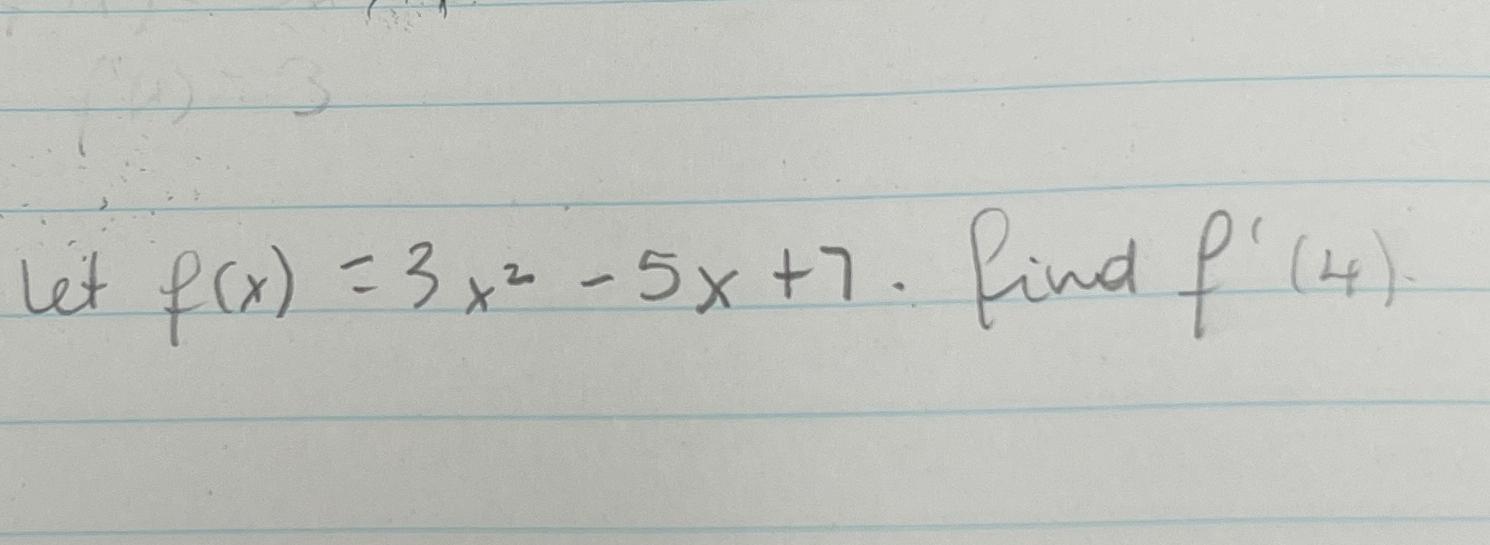 let f(x) = 3x² - 5x + 7. find f'(4).